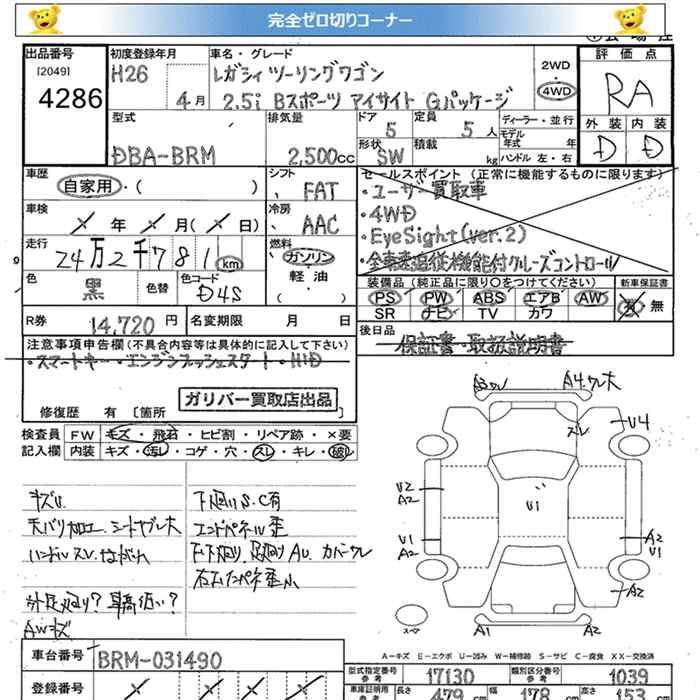 完全ゼロ切りコーナー
出品番号 初度登録年月 車名・グレード 評価点
[2049] H26 レガシィツーリングワゴン 2WD
4286 4月 2.5i Bスポーツ アイサイト Gパッケージ 4WD RA
型式 排気量 ドア 5 定員 5人 ディーラー・並行 外装 内装
モデル年式 年
DBA-BRM 2,500cc 形状 SW 積載 kg ハンドル 左・右 D D
車歴 シフト セールスポイント (正常に機能するものに限ります)
自家用・( ) FAT ・ユーザー買取車
車検 冷房 ・4WD
年 月( 日) AAC ・EyeSight(ver.2)
走行 燃料 ・全車速追従機能付クルーズコントロール
24万2千781km ガソリン
色 色替 色コード 軽・油 装備品 (純正品に限り○をつけてください) 新車保証書
黒 D4S ( ) PS PW ABS エアB AW 有 無
SR ナビ TV カワ
R券 14,720円 名変期限 月 日 後日品
注意事項申告欄(不具合内容等は具体的に記入して下さい) 保証書・取扱説明書
・スマートキー・エンジンプッシュスタート・HID
ガリバー買取店出品
修復歴 有 [箇所
検査員 FW キズ・飛石・ヒビ割・リペア跡・×要
記入欄 内装 キズ・汚レ・コゲ・穴・スレ・キレ・破レ
A3 A4
U4
キズU. 下廻りS.C有
天バリ加工.シートヤブレ大 エンドパネル歪
ハンドルスレ.
外足廻り?車高低い?
AWキズ
U2
A2
U1
U1
A2
A2
U1
A2
A1 A2
スペア
A-キズ E-エクボ U-凹み W-補修跡 S-サビ C-腐食 XX-交換済
車台番号 BRM-031490 型式指定番号 参考 17130 類別区分番号 参考 1039
登録番号 車庫証明用 参考 長さ 479 cm 幅 178 cm 高さ 153 cm